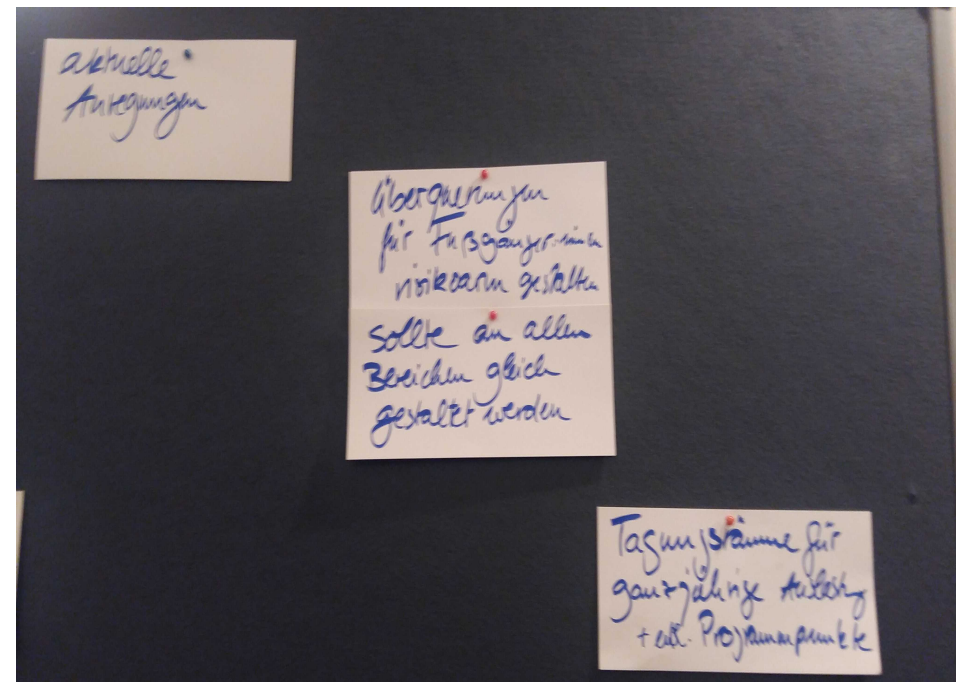 aktuelle
Anregungen
Überquerungen
für Fußgänger:innen
risikoarm gestalten
sollte an allen
Bereichen gleich
gestaltet werden
Tagungsräume für
ganzjährige Auslastung
+ Programmpunkte